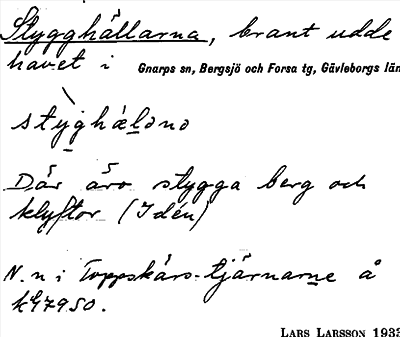 Stygghällarna, brant udde
havet i Gnarps sn, Bergsjö och Forsa tg, Gävleborgs län
stỳghälənə
Där äro stygga berg och
klyftor (Idén)
N. n i Toppskärs-tjärnarne å
k47950.
LARS LARSSON 1933